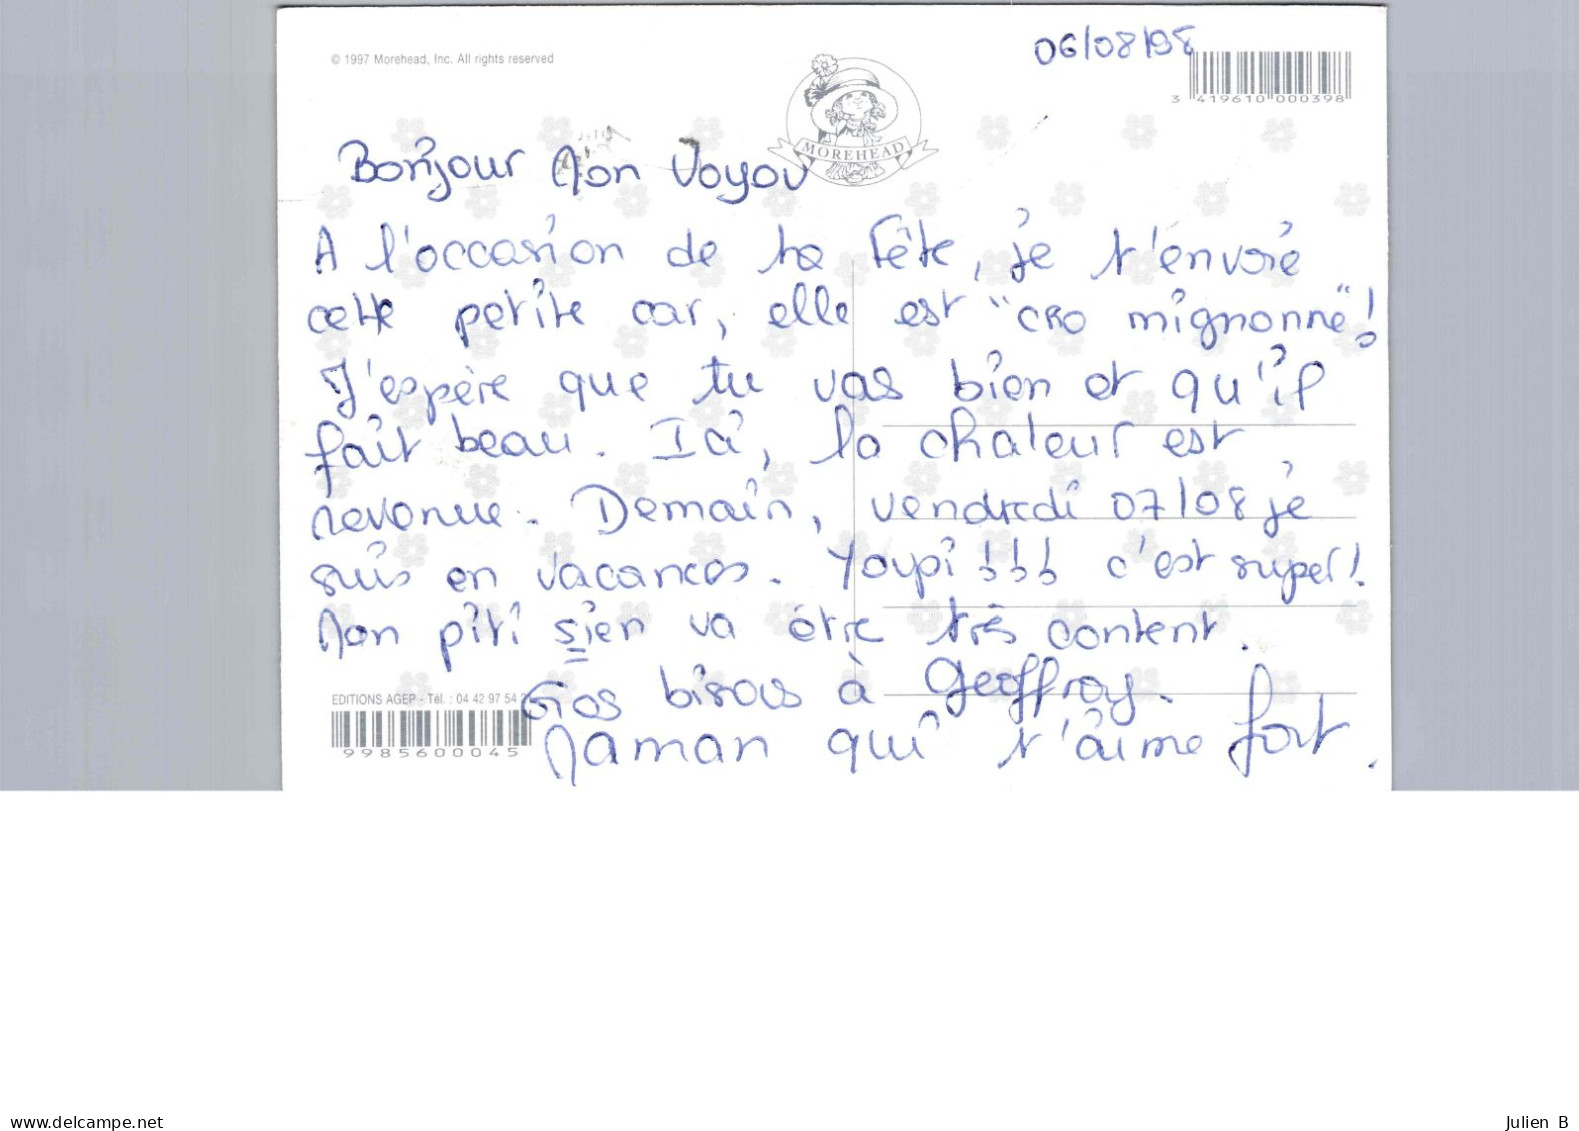 © 1997 Morehead, Inc. All rights reserved
06/08/98
3 419610 000398
MOREHEAD
Bonjour Mon Voyou
A l'occasion de ta fête, je t'envoie
cette petite car, elle est "CRO mignonne"!
J'espère que tu vas bien et qu'il
fait beau. Ici, la chaleur est
revenue. Demain, vendredi 07/08 je
suis en vacances. Youpi !!! c'est super!
Mon piti sien va être très content.
Gros bisous à Geoffroy.
EDITIONS AGEP - Tél. : 04 42 97 54
9985600045
Maman qui t'aime fort.
www.delcampe.net
Julien B